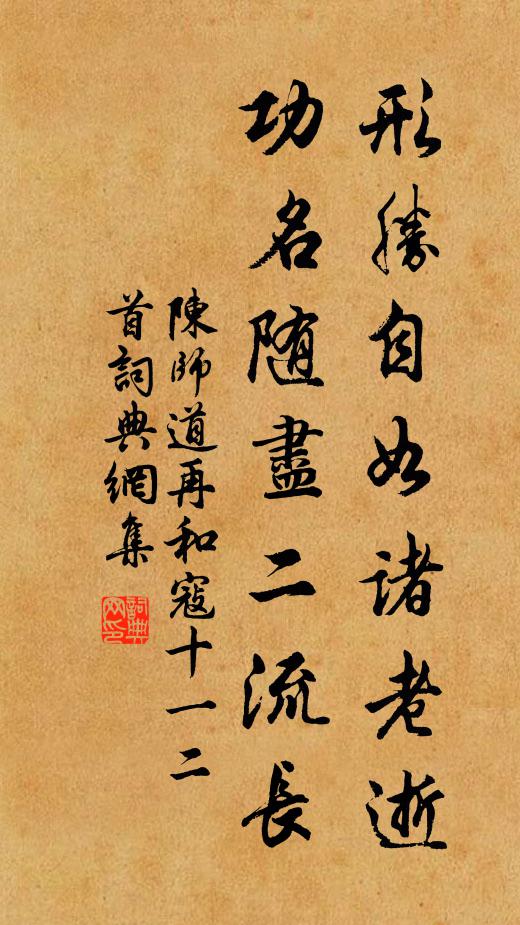 形勝自如諸老逝
功名随盡二流長
陳師道再和寇十一二
首詞典網集
詞典网印